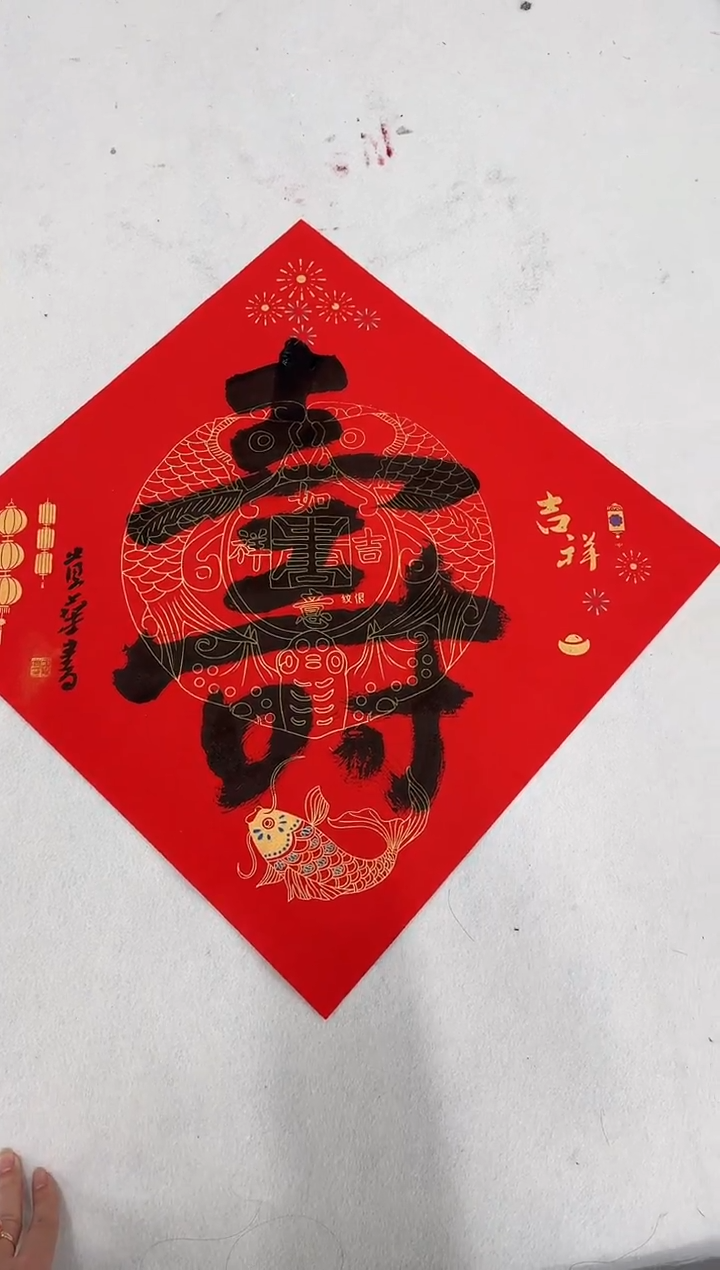 壽
如
祥 吉
意
吉祥
華書